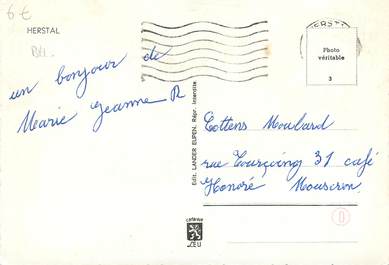 6 €
HERSTAL
un bonjour de
Marie Jeanne R
HERSTAL
Photo
véritable
3
Edit. LANDER EUPEN. Répr. Interdite
Cottens Moulard
rue Tourcoing 31 café
Honoré Mouscron
ZEU